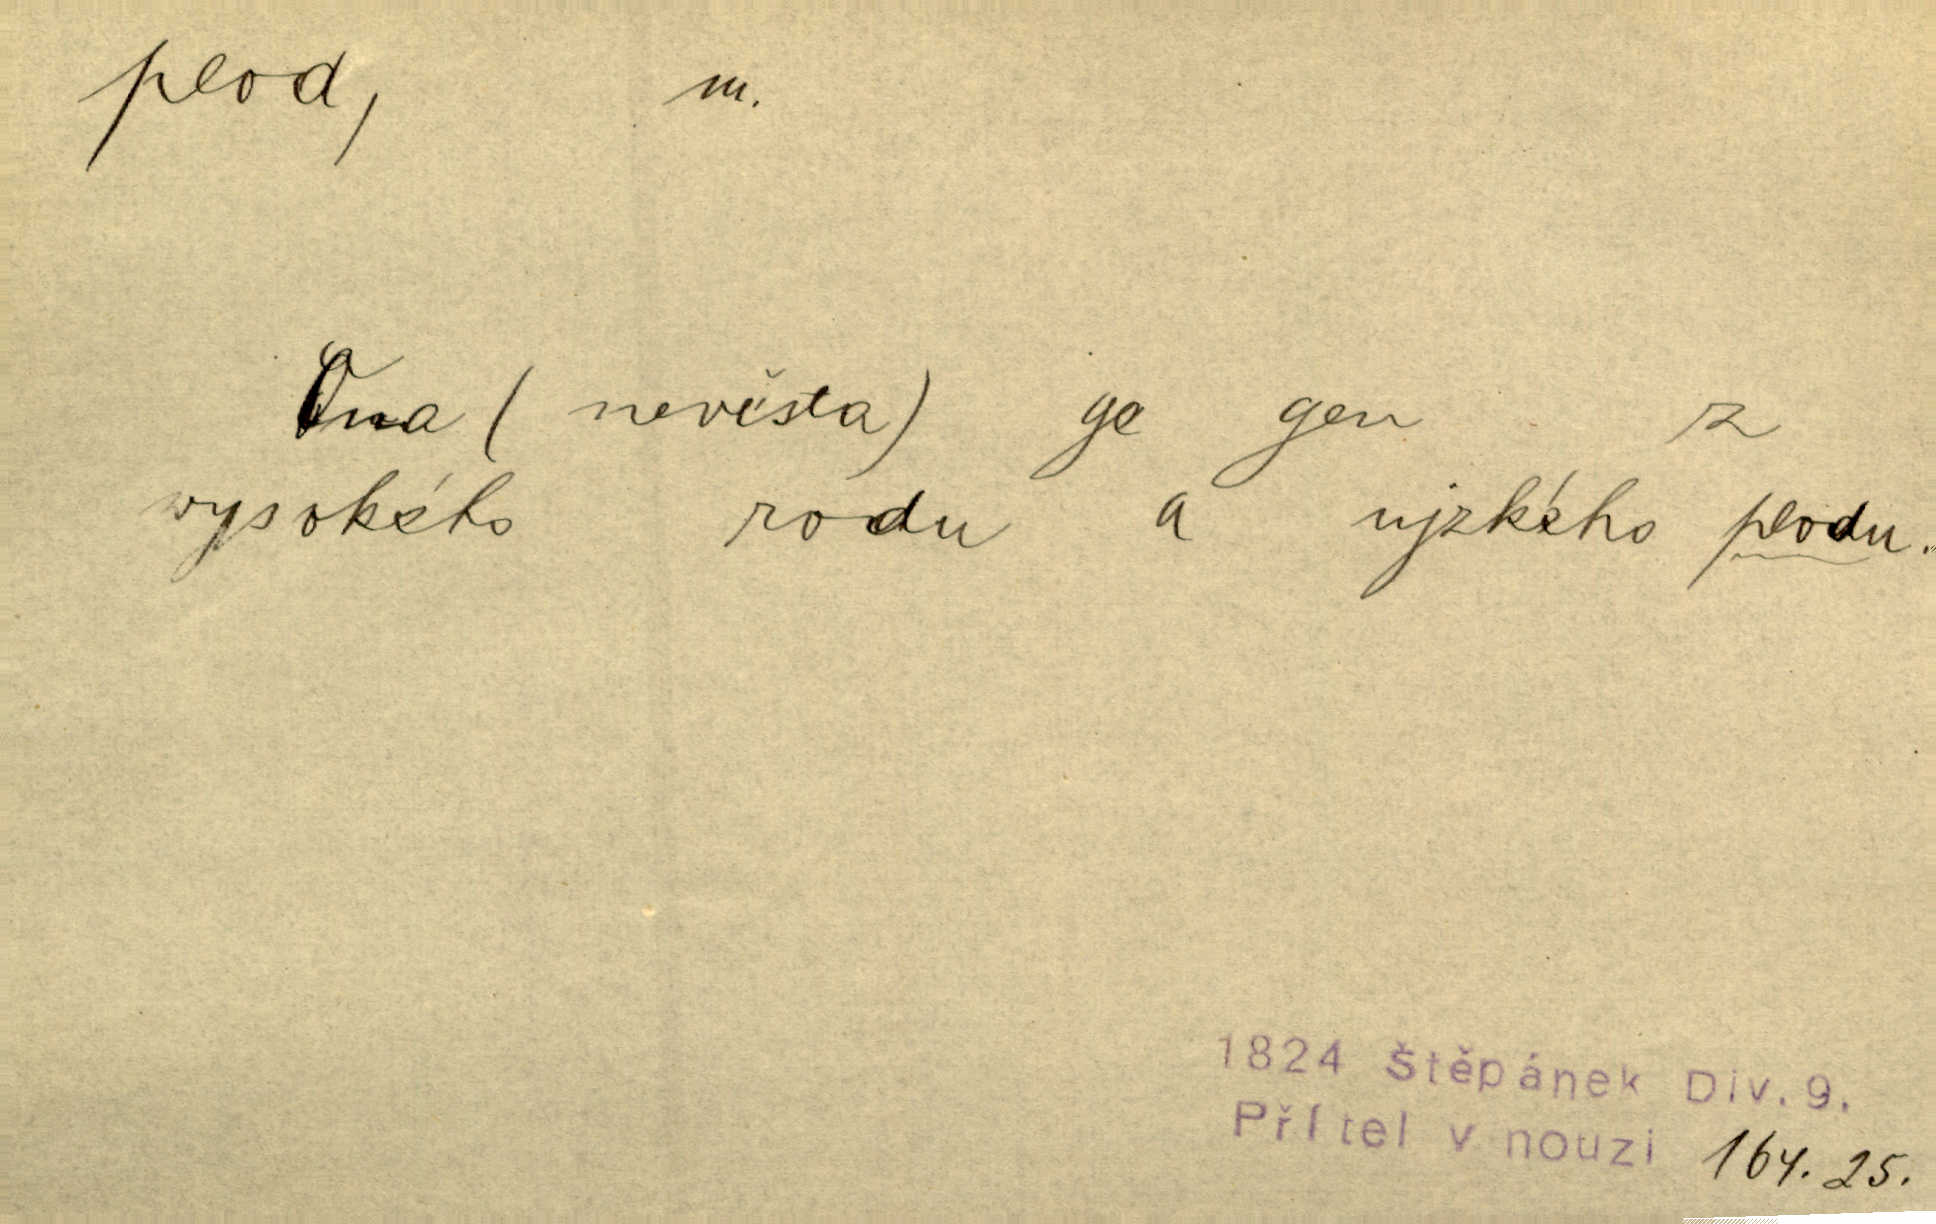 plod, m.
Ona (nevěsta) ge gen z
wysokého rodu a njzkého plodu.
1824 Štěpánek Div. 9.
Přítel v nouzi 164. 25.